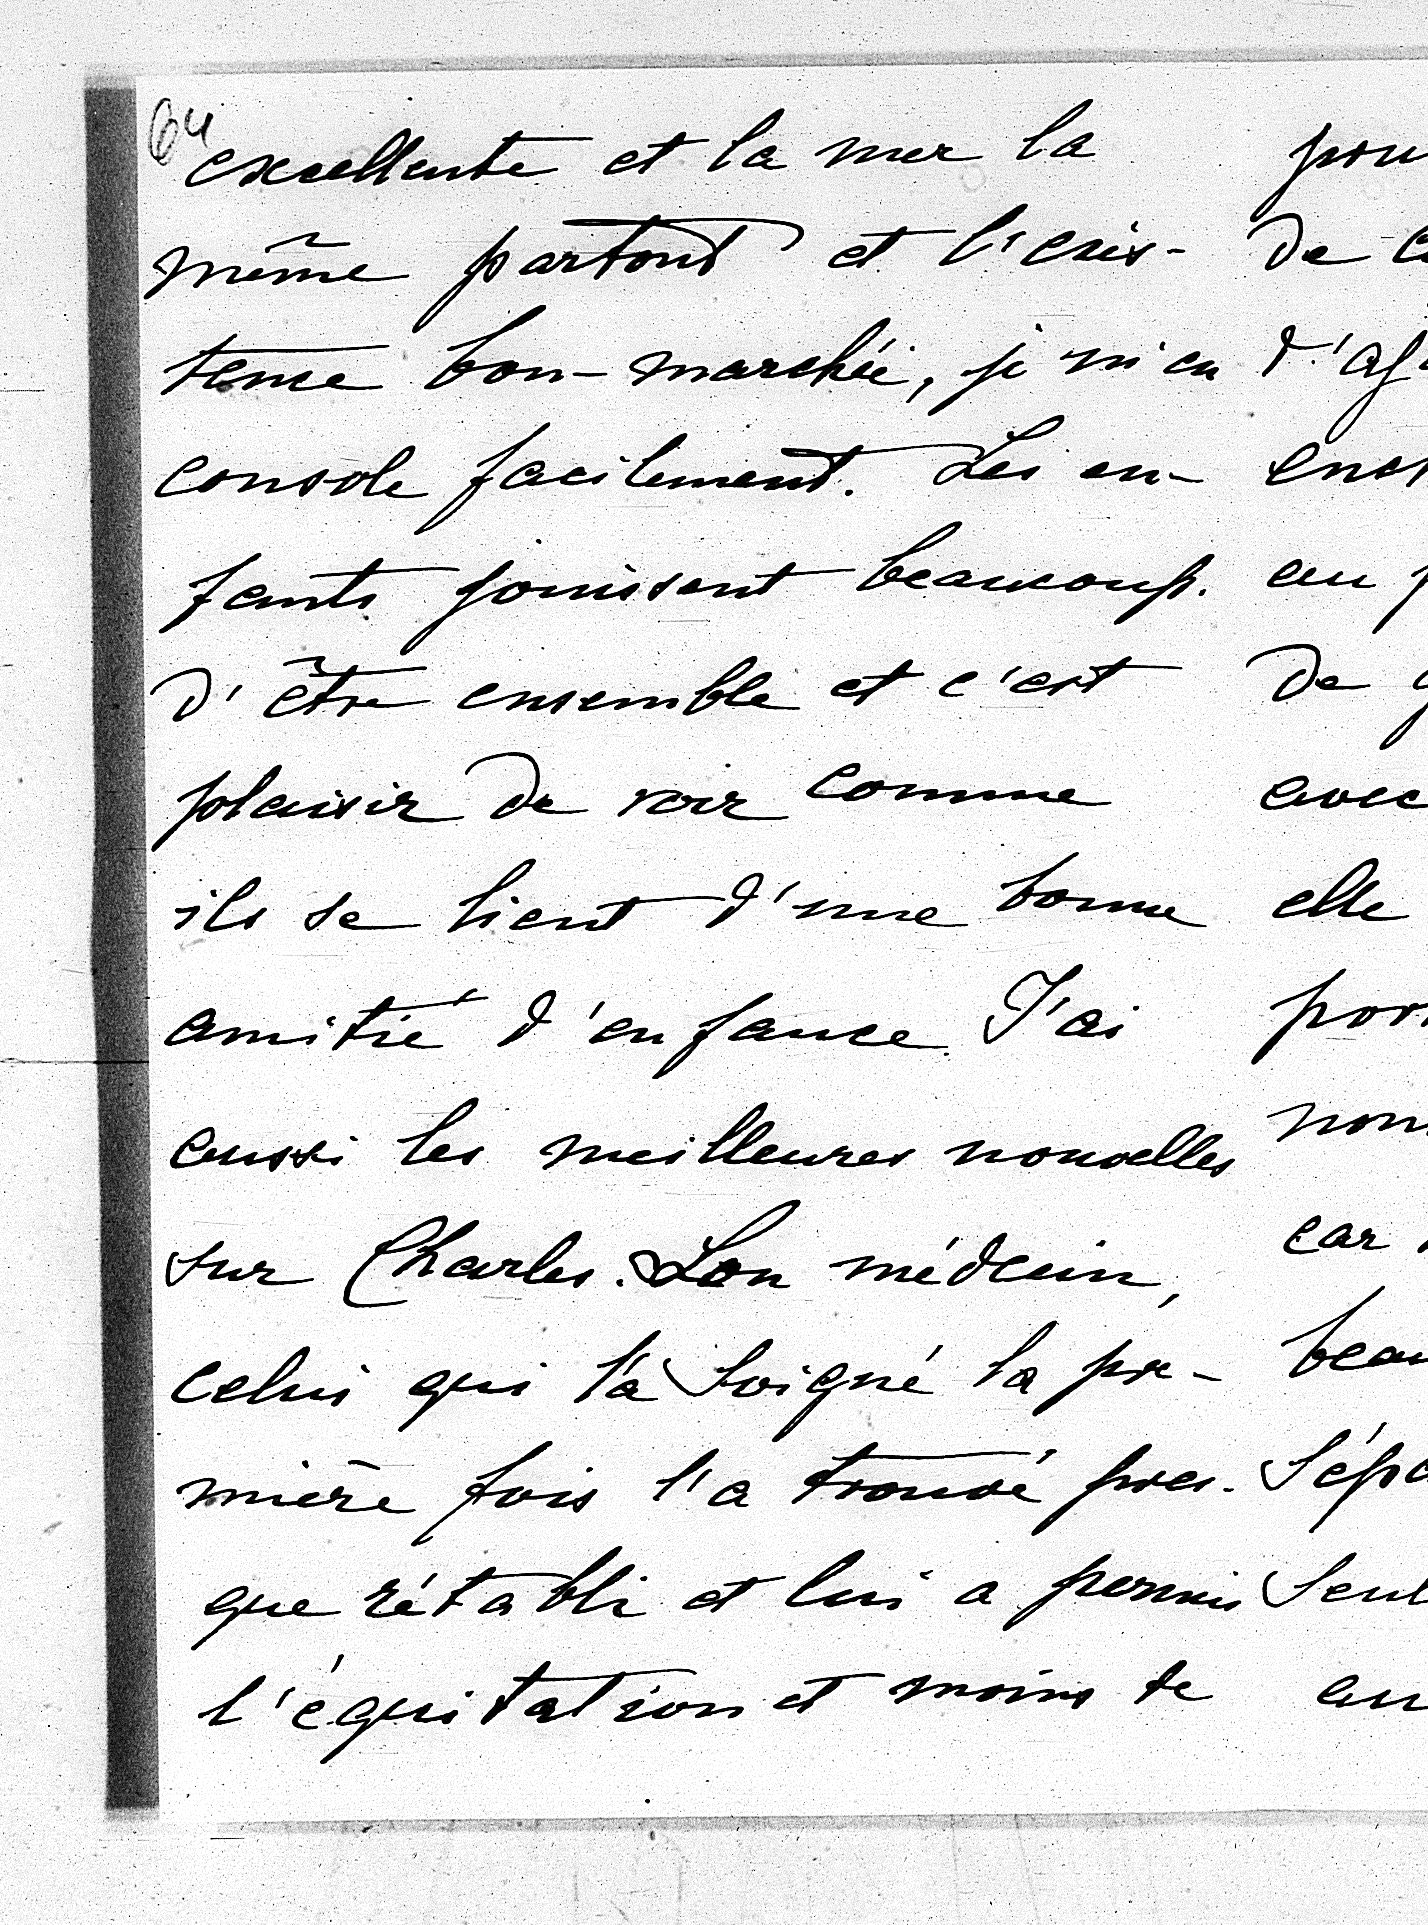 64
excellente et la mer la
même partout et l'exis-
tence bon-marchée, je m'en
console facilement. Les en-
fants jouissent beaucoup.
d'être ensemble et c'est
plaisir de voir comme
ils se lient d'une bonne
amitié d'enfance. J'ai
aussi les meilleures nouvelles
sur Charles. Son médecin,
celui qui l'a soigné la pre-
mière fois l'a trouvé pres-
que rétabli et lui a permis
l'équitation et moins de
de
avec
elle
car
au